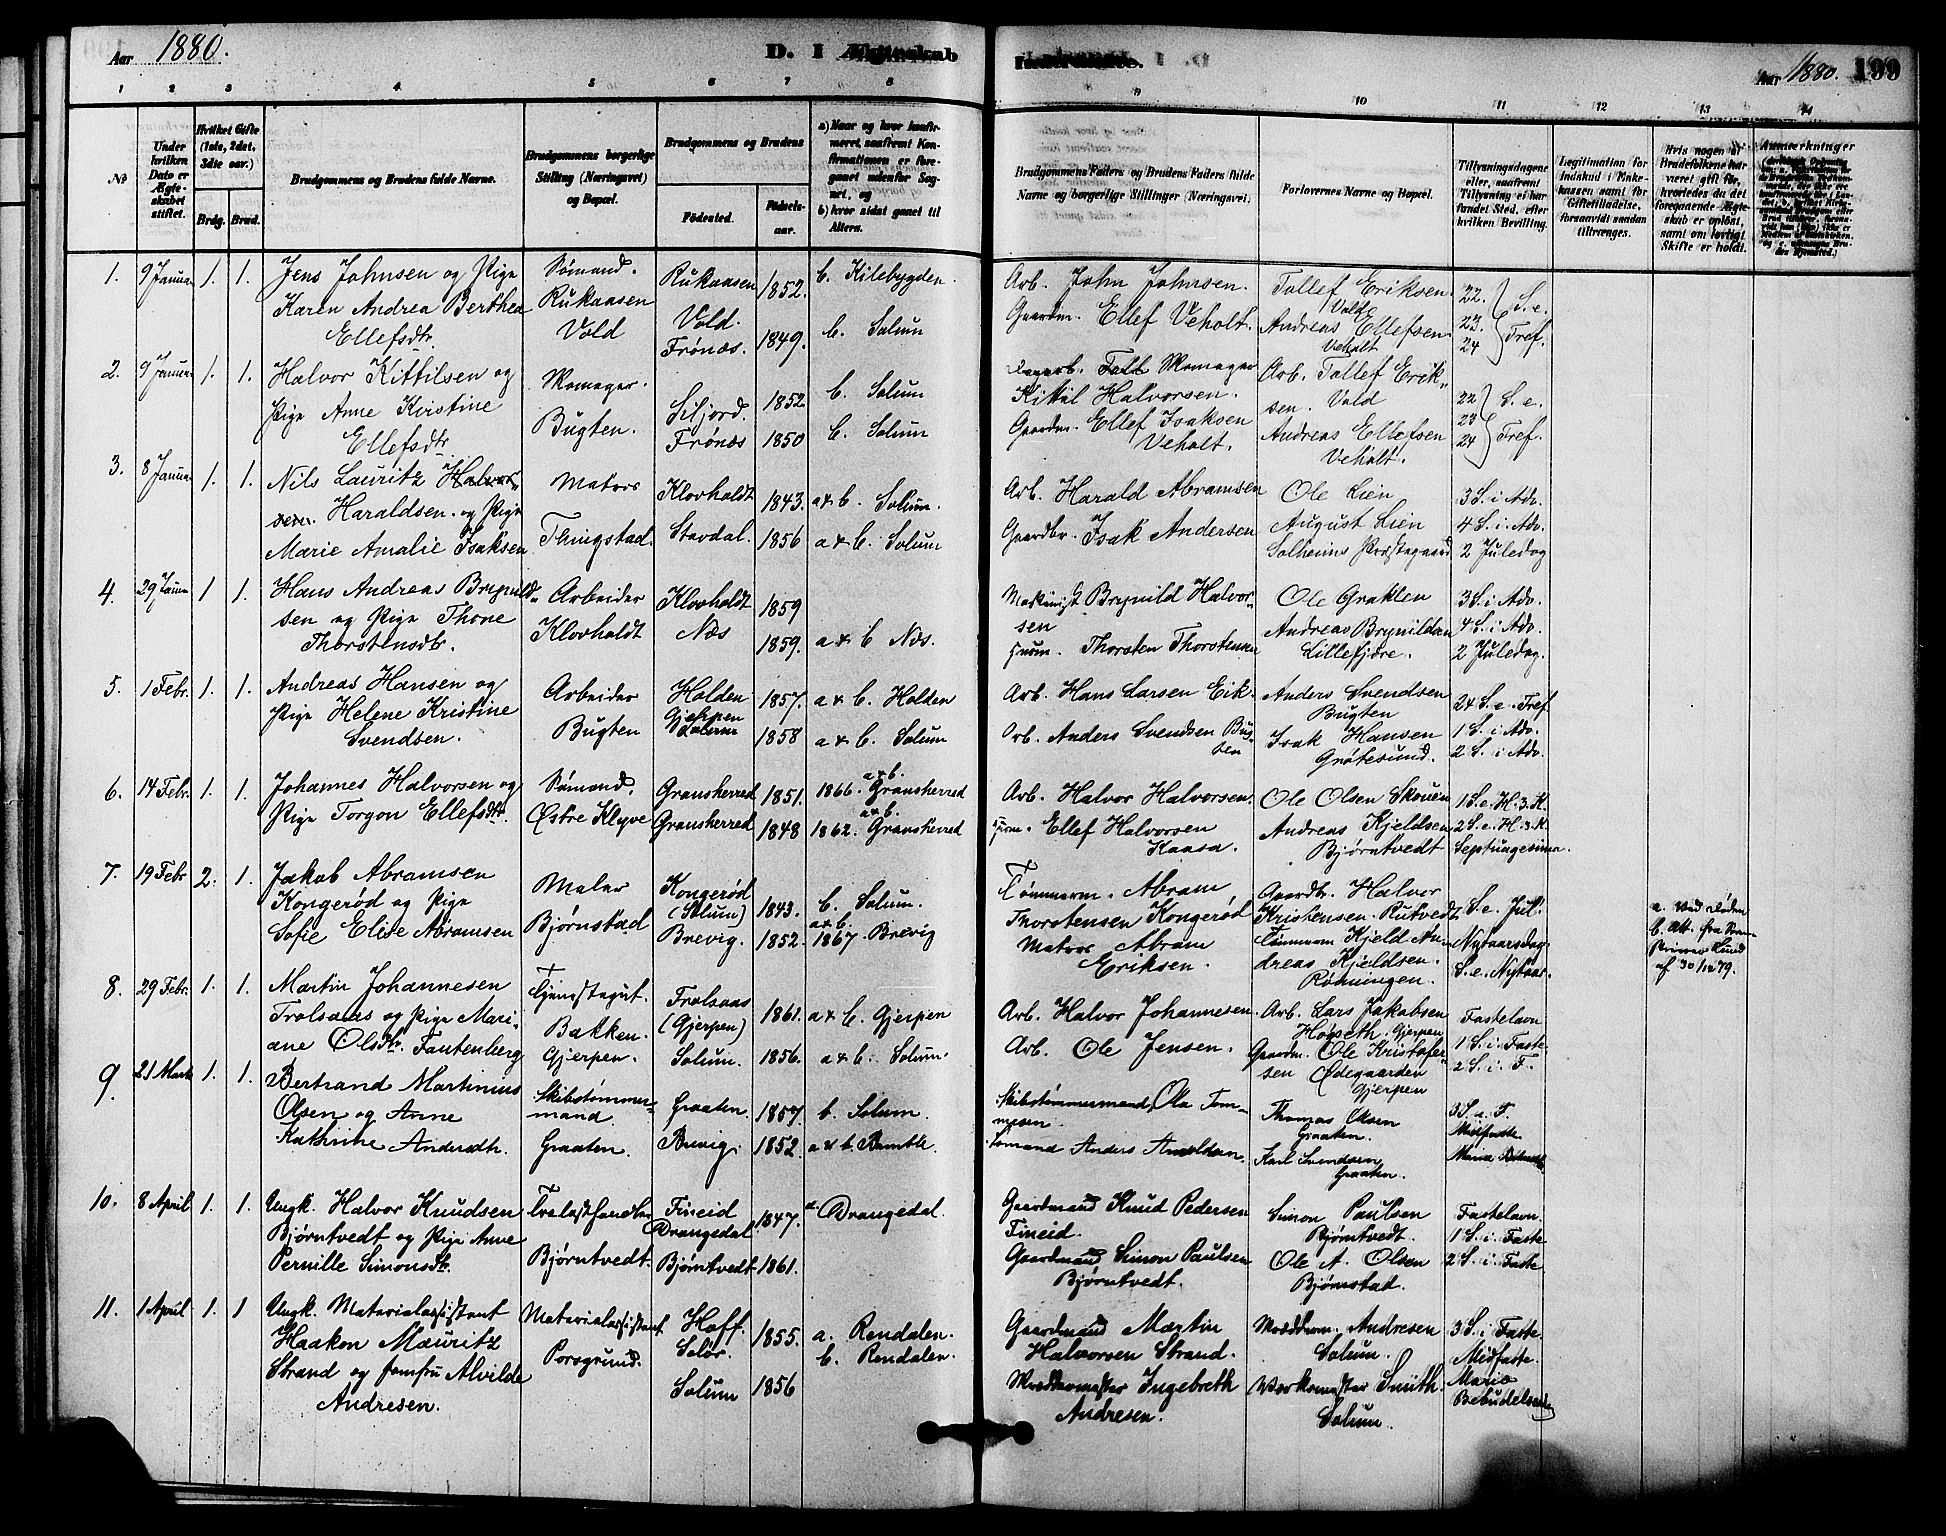 Aar 1880.
D. I Ægteskab
1 2 3 4 5 6 7 8
No
Under hvilken Dato er Ægteskabet stiftet.
Hvilket Gifte (1ste, 2det, 3die osv.)
Brdg. Brud.
Brudgommens og Brudens fulde Navne.
Brudgommens borgerlige Stilling (Næringsvei) og Bopæl.
Brudgommens og Brudens
Fødested. Fødselsaar.
a) Naar og hvor konfirmeret, saafremt Konfirmationen er foregaaet udenfor Sognet, og
b) hvor sidst gaaet til Alters.
1. 9 Januar 1. 1. Jens Johnsen og Pige Sømand. Rukaasen 1852. b. Kilebygden.
Karen Andrea Berthea Rukaasen Vold.
Ellefsdtr. Vold Frönæs. 1849. b. Solum
2. 9 Januar 1. 1. Halvor Kittilsen og Skomager. Siljord. 1852. b. Solum
Pige Anne Kirstine Bugten. Frönæs 1850 b. Solum
Ellefsdtr
3. 8 Januar 1. 1. Nils Lauritz Halvor- Matros Klovholdt 1843. a & b. Solum.
sen. Haraldsen. og Pige
Marie Amalie Isaksen Thingstad. Stavdal. 1856 a & b. Solum
4. 29 Januar 1 1. Hans Andreas Brynild- Arbeider Klovholdt 1859
sen og Pige Thone Klovholdt Næs 1859. a & b Næs.
Thorstensdtr.
5. 1 Febr. 1. 1. Andreas Hansen og Arbeider Holden 1857. a & b. Holden
Pige Helene Kristine Bugten Gjerpen Solum 1858 a & b. Solum
Svendsen.
6. 14 Febr. 1. 1. Johannes Halvorsen og Sømand. Gransherred 1851. 1866. a & b. Gransherred
Pige Torgon Ellefsdtr. Østre Klyve Gransherred 1848 1862. a & b. Gransherred
7. 19 Febr 2. 1. Jakob Abramsen Maler Kongerød
Kongerød og Pige (Solum) 1843. b. Solum.
Sofie Elise Abramsen Bjørnstad Brevig. 1852. 1867. a & b. Brevig
8. 29 Febr. 1. 1. Martin Johannesen Tjenestegut. Trolsaas
Trolsaas og Pige Mari- Bakken. (Gjerpen) 1861. a & b. Gjerpen
ane Olsdtr. Fantenberg Gjerpen. Solum. 1856. a & b. Solum.
9. 21 Marts 1. 1. Bertrand Martinius Skibstømmer-
Olsen og Anne mand. Graaten. 1857. b. Solum.
Kathrine Andersdtr. Graaten. Brevig. 1852. a & b. Bamble.
10. 8 April 1. 1. Ungk. Halvor Knudsen Trælasthandler Fineid 1847. a Drangedal.
Bjørntvedt og Pige Anne Drangedal
Pernille Simonsdtr. Bjørntvedt. Bjørntvedt 1861.
11. 1 April 1. 1 Ungk. Materialassistent Materialassistent Hoff. 1855. a. Rendalen.
Haakon Mauritz Solør. b. Rendalen.
Strand og Jomfru Alvilde Porsgrund. Solum 1856
Andresen.
Aar 1880. 199
9 10 11 12 13 14
Brudgommens Faders og Brudens Faders fulde Navne og borgerlige Stillinger (Næringsvei.
Forlovernes Navne og Bopæl.
Tillysningsdagene eller, saafremt Tillysning ei har fundet Sted, efter hvilken Bevilling.
Legitimation for Indskud i Enkekassen samt for Giftetilladelse, forsaavidt saadan tiltrænges.
Hvis nogen af Brudefolkene har været gift før, hvorledes da det foregaaende Ægteskab er opløst, samt om lovligt Skifte er holdt.
Anmerkninger
Arb. John Johnsen. Tollef Eriksen. 22. S. e.
Vold
Gaardm. Ellef Veholt. Andreas Ellefsen 23. Tref.
Veholt 24
Skomager Arb. Tollef Erik-
Kittil Halvorsen. sen. Vold 22 S. e.
Gaardm. Ellef Isaksen Andreas Ellefsen 23 Tref.
Veholt. Veholt. 24
Arb. Harald Abramsen Ole Lien 3 S. i Adv.
Gaardbr. Isak Andersen August Lien 4 S. i Adv.
Solheims Præstegaard 2 Juledag
Maskinist Brynild Halvor- Ole Graklen 3 S. i Adv.
sen Andreas Brynildsen 4 S. i Adv.
Thorsten Thorstensen Lillefjære. 2 Juledag.
Arb. Hans Larsen Eik. Anders Svendsen 24 S. e. Tref
Bugten 1 S. i Adv.
Arb. Anders Svendsen Bug- Isak Hansen 2 S. i Adv.
ten Grøtesund.
Arb. Halvor Halvorsen. Ole Olsen Skouen 1 S. e. H. 3. K.
Ellef Halvorsen Andreas Kjeldsen 2 S. e. H. 3. K.
Kaasa. Bjørntvedt Septuagesima.
Tømmerm. Abram Gaardbr. Halvor
Thorstensen Kongerød Kristensen. Rutvedt S. e. Jul. a. Ved Døden
Matros Abram Tømmerm Kjeld An- Nytaarsdag b. Att. fra
Eriksen. dreas Kjeldsen. S. e. Nytaar. Knud
Röhningen. af 30/12 79.
Arb. Halvor Johannesen. Arb. Lars Jakobsen Fastelavn
Høgseth. Gjerpen
Arb. Ole Jensen. Gaardm. Ole Kristofer- 1 S. i Faste
sen Ødegaarden 2 S. i F.
Gjerpen
Skibstømmermand Ole Tom- Thomas Olsen 3 S. i F.
mesen. Graaten. Midfaste
Sømand Anders Arnoldsen. Karl Svendsen Maria
Graaten.
Gaardmand Knud Pedersen Simon Paulsen Fastelavn
Fineid. Bjørntvedt. 1 S. i Faste
Gaardmand Simon Paulsen Ole A. Olsen 2 S. i Faste
Bjørntvedt. Bjørnstad
Gaardmand Martin Andresen 3 S. i Faste.
Halvorsen Strand. Solum. Midfaste.
Ingebreth Værksmester Smith. Mariæ
Andresen. Solum. Bebudelsesdag